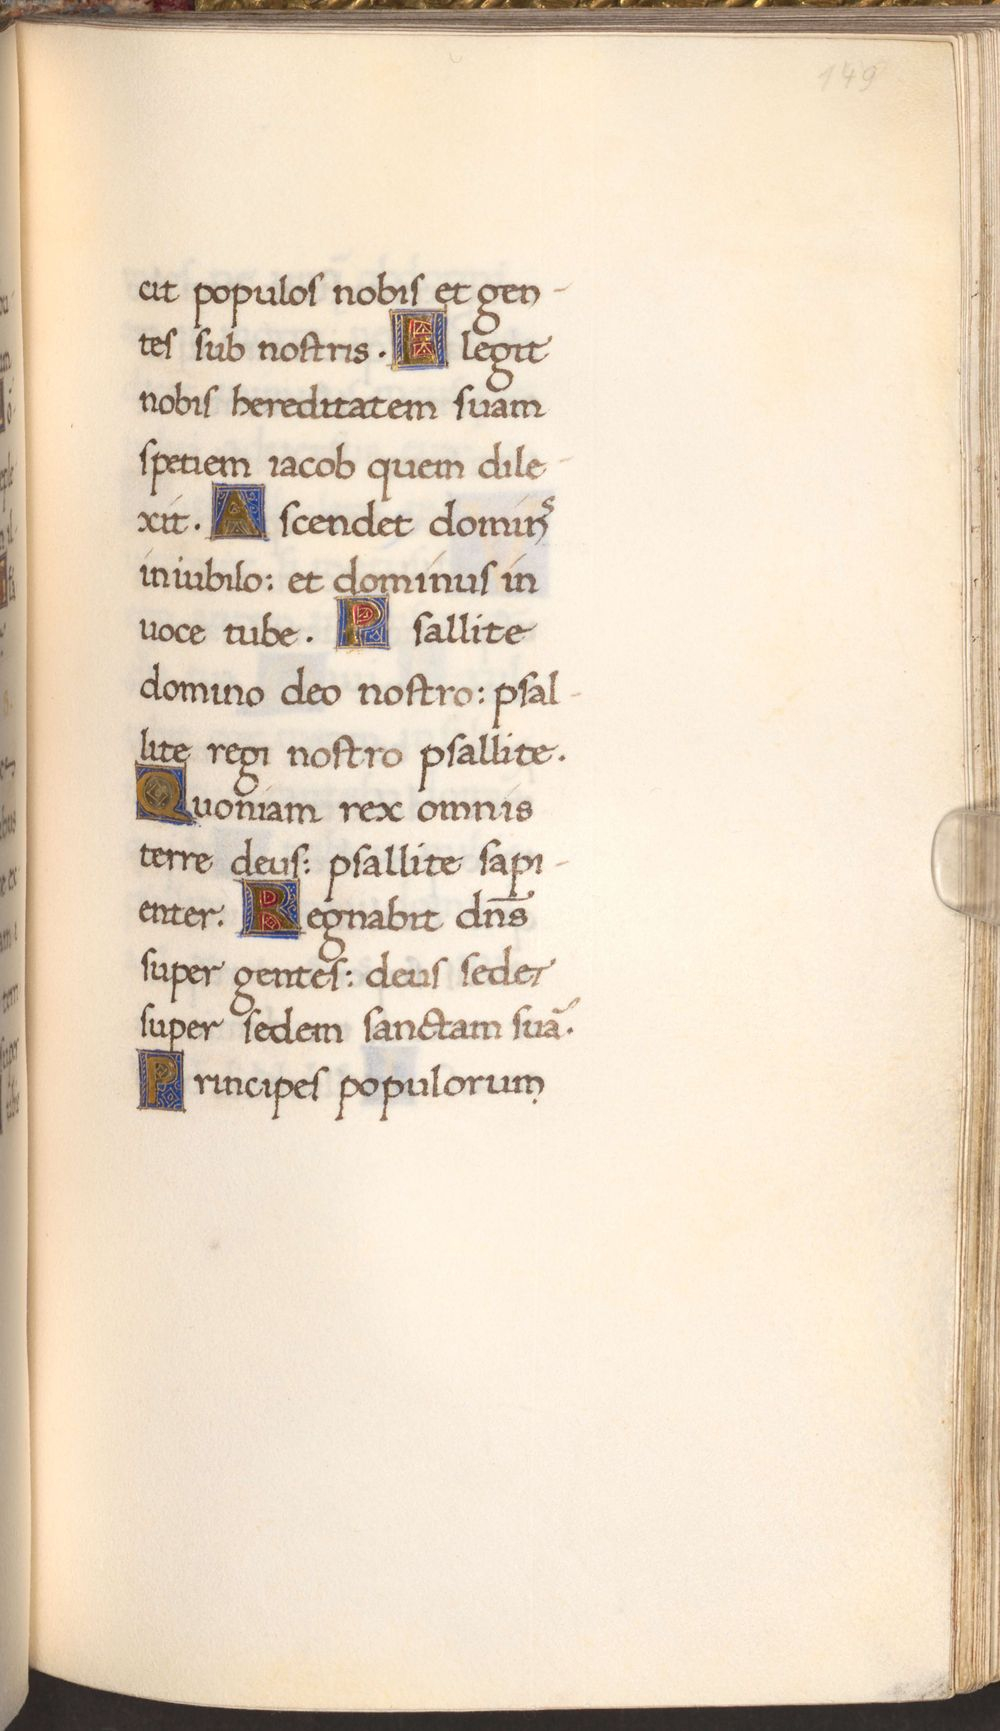 149
cit populos nobis et gen-
tes sub nostris. Elegit
nobis hereditatem suam
spetiem iacob quem dile-
xit. Ascendet dominꝰ
in iubilo: et dominus in
uoce tube. Psallite
domino deo nostro: psal-
lite regi nostro psallite.
Quoniam rex omnis
terre deus: psallite sapi-
enter. Regnabit dn̄s
super gentes: deus sedet
super sedem sanctam suā.
Principes populorum